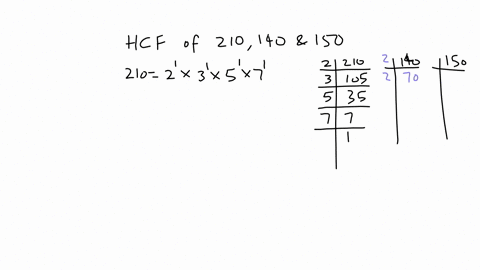 HCF of 210, 140 & 150
210 = 2¹ × 3¹ × 5¹ × 7¹
2 | 210
3 | 105
5 | 35
7 | 7
1
2 | 140
2 | 70
150